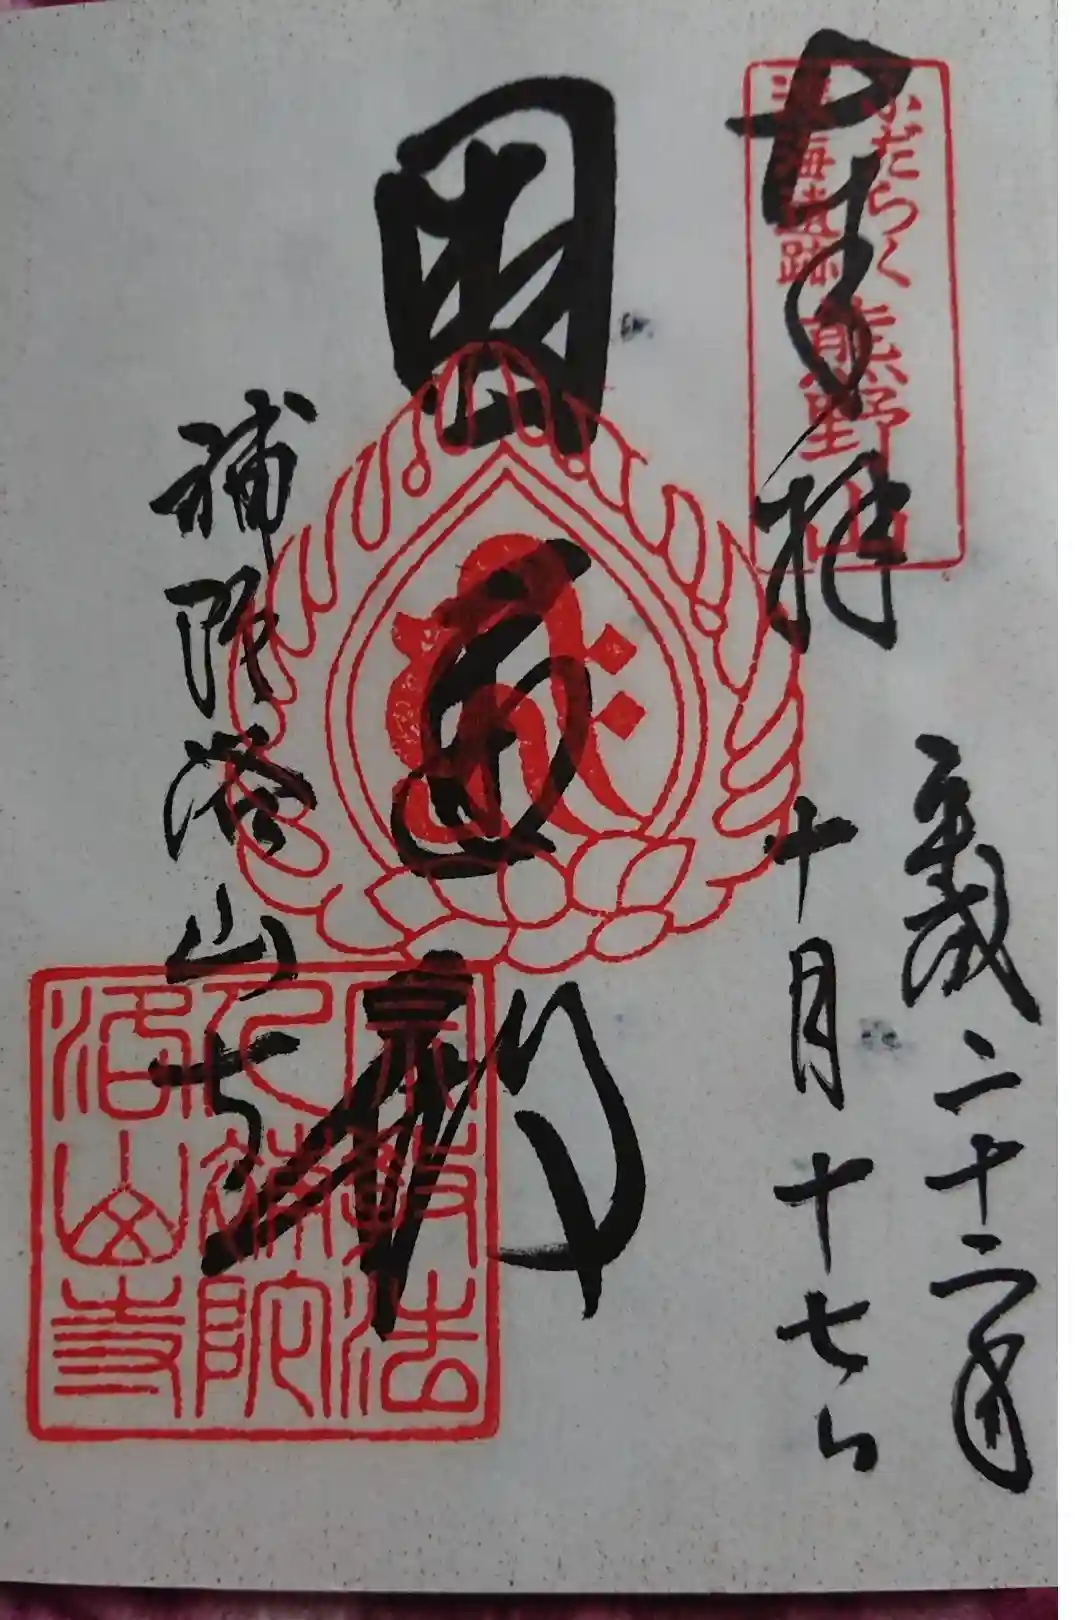 奉拝
ふだらく
渡海遺跡
熊野山
平成二十二年
十月十七日
補陀洛山寺
宗教法
人補陀
洛山寺